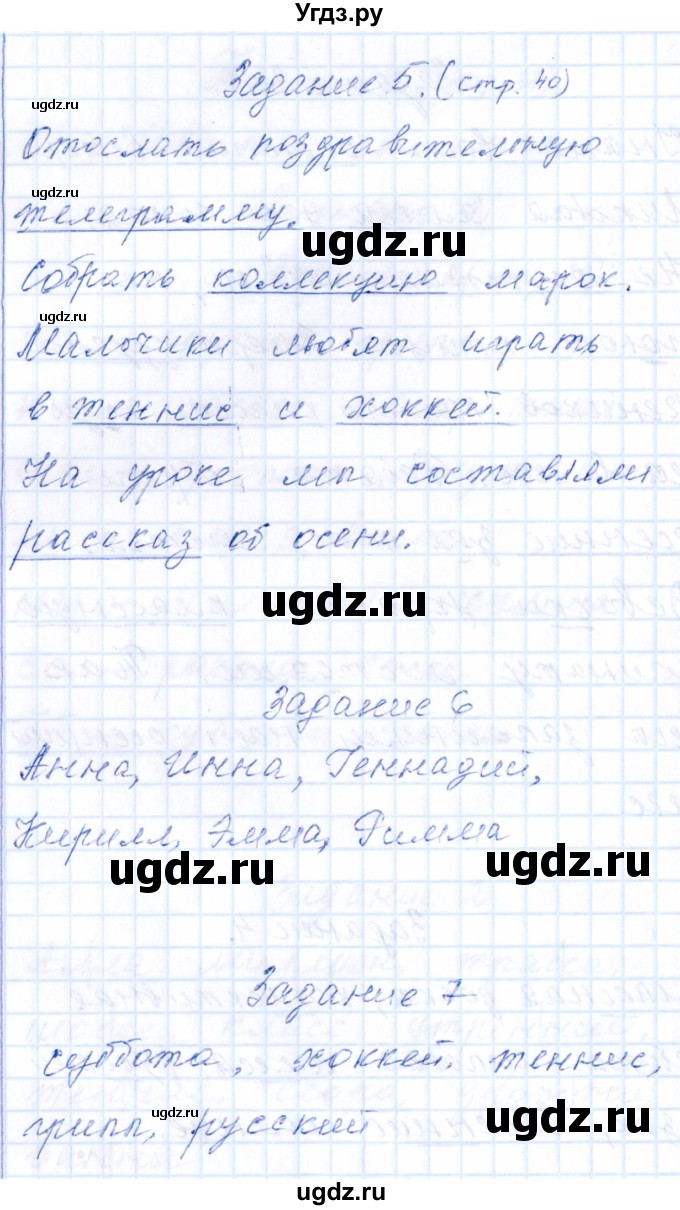 Угдз.ру
Задание 5. (стр. 40)
ugdz.ru
Отослать поздравительную
ugdz.ru
телеграмму.
ugdz.ru
Собрать коллекцию марок.
ugdz.ru
Мальчики любят играть
в теннис и хоккей.
На уроке мы составляли
рассказ об осени.
ugdz.ru
Задание 6
Анна, Инна, Геннадий,
Кирилл, Эмма, Римма
ugdz.ru
ugdz.ru
Задание 7
суббота, хоккей, теннис,
ugdz.ru
ugdz.ru
грипп, русский
ugdz.ru